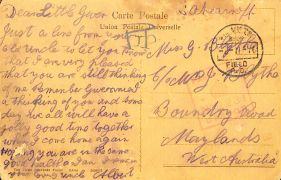 Dear Little Gwen
Just a line from your
old Uncle to let you know
that I am very pleased
that you are still thinking
of me. Remember Gwen and
a thinking of you and some
day we all will have a
jolly good time together
when I come home again
Hoping you are in the same
good health as I am. I remain
your long Uncle Albert
Carte Postale
Union Postale Universelle
Miss G
C/o M
Boundry Road
Maylands
West Australia
FIELD